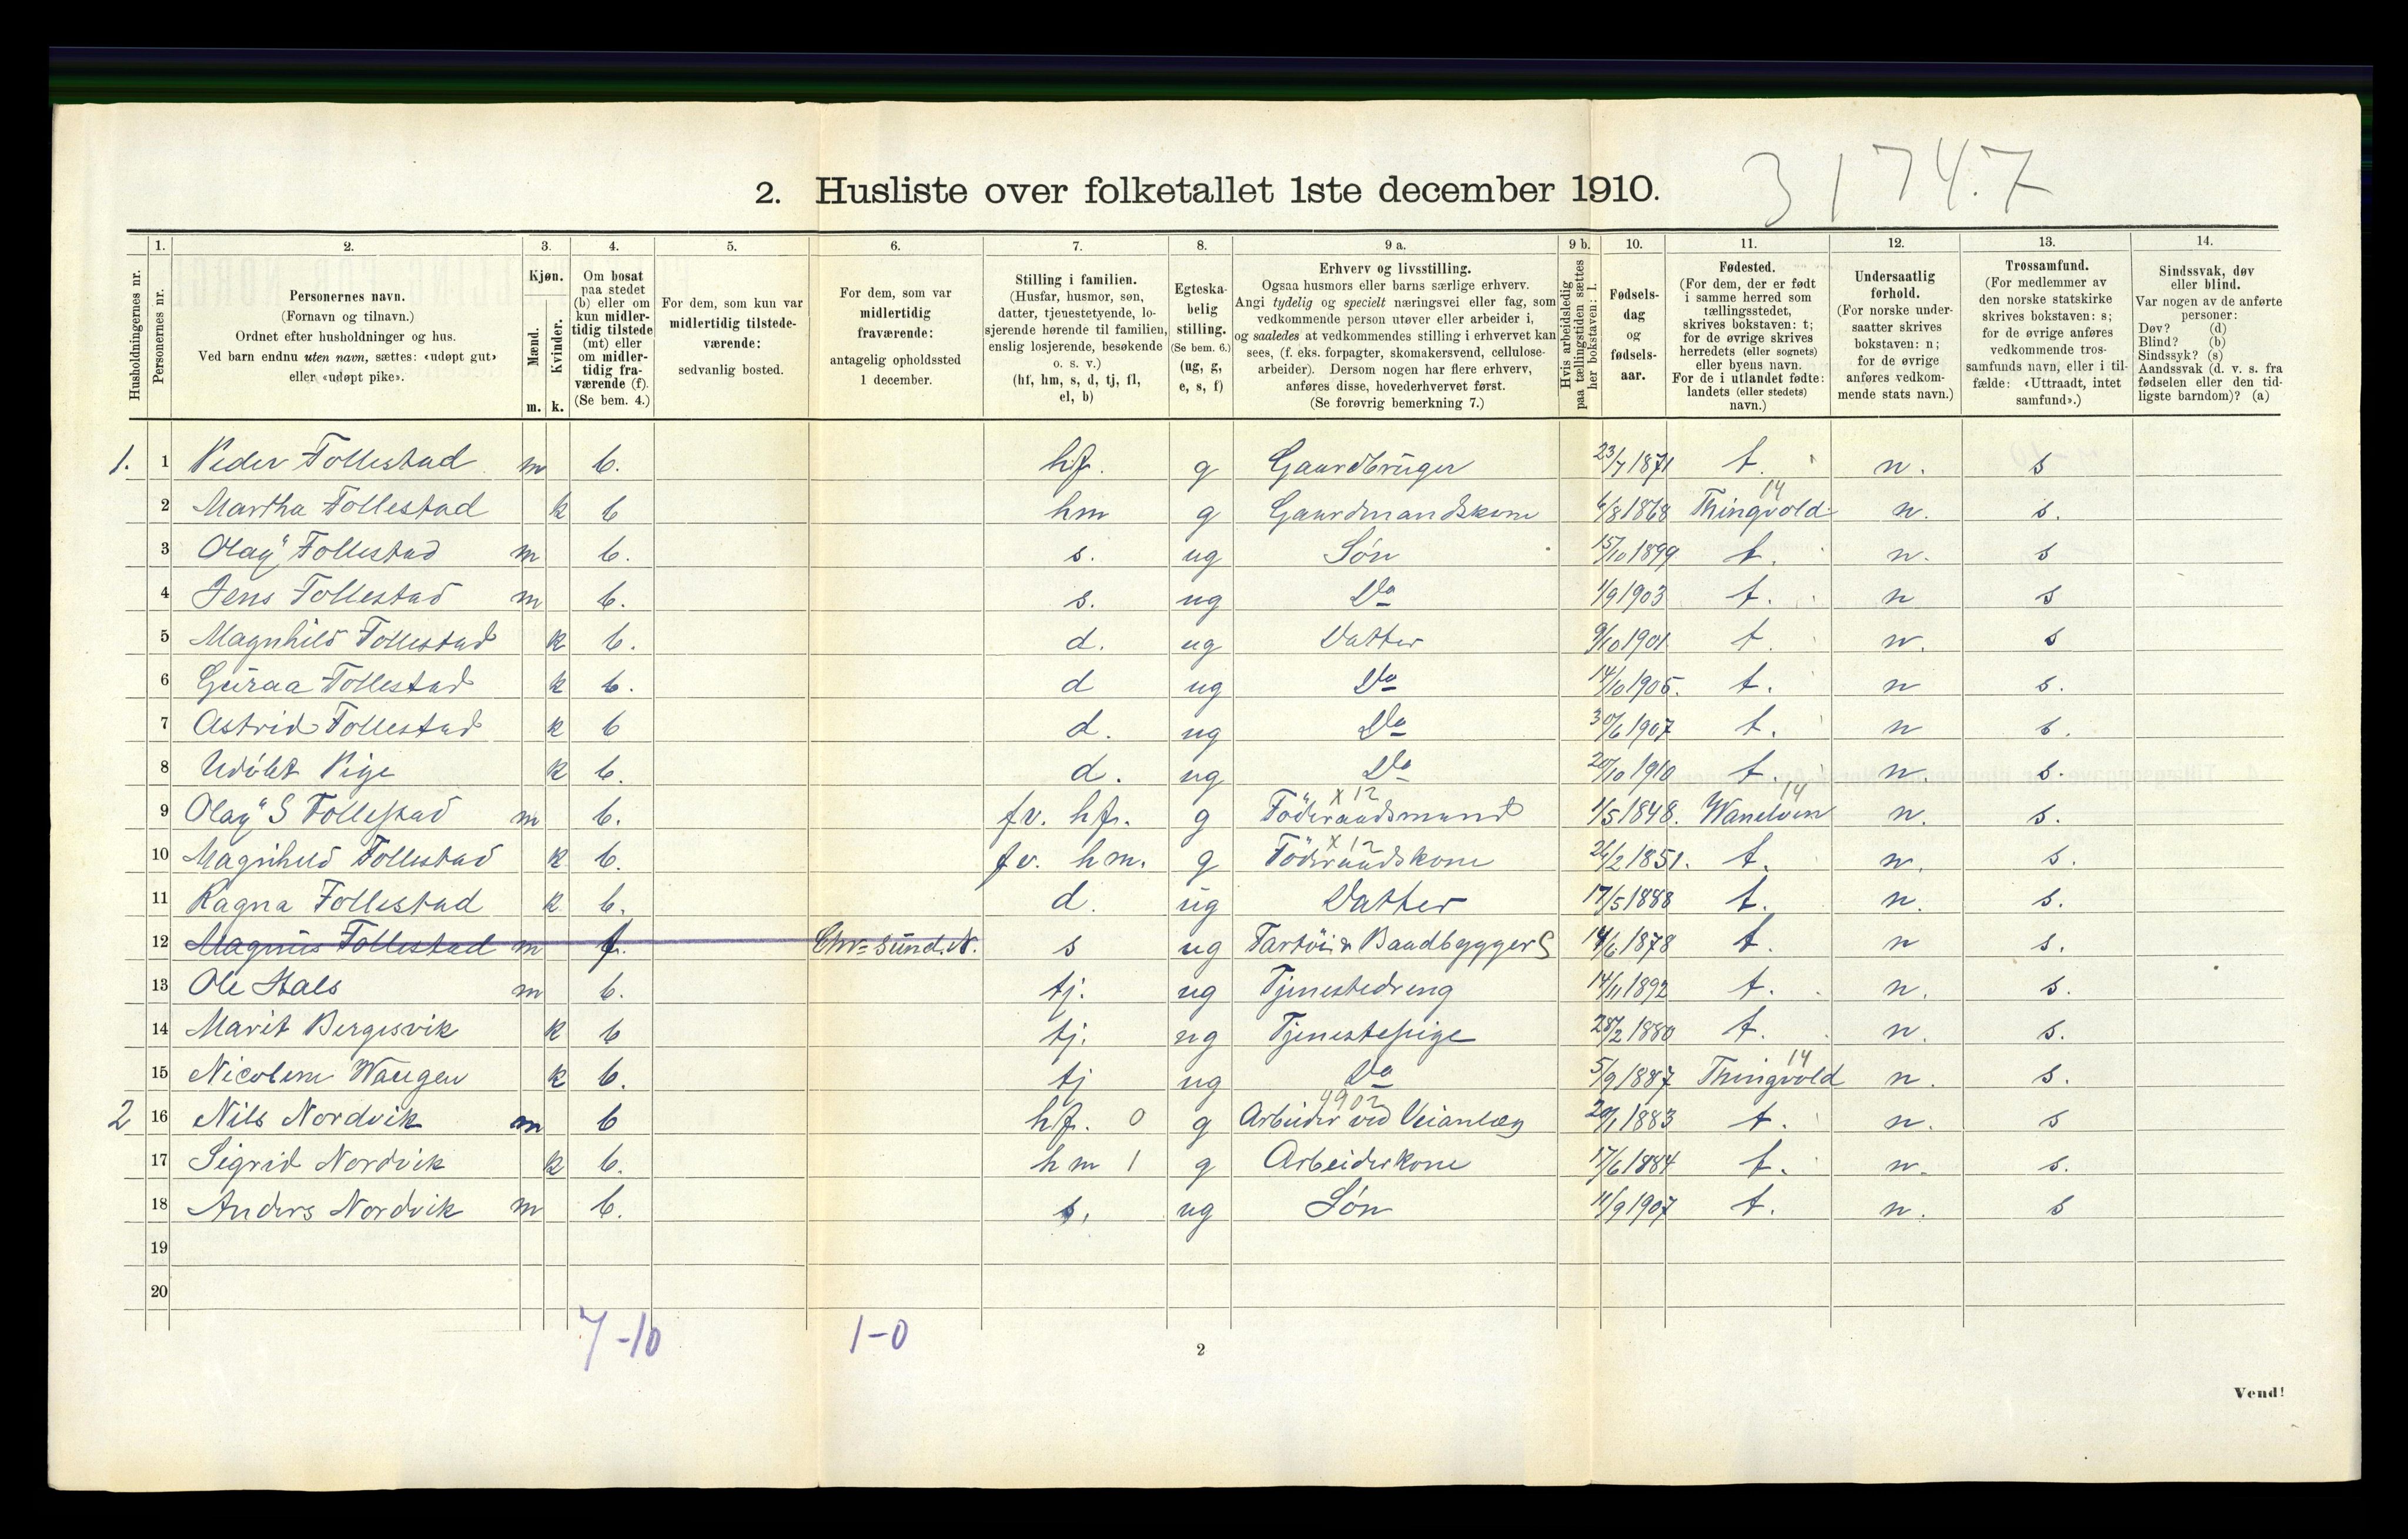 31747
2. Husliste over folketallet 1ste december 1910.
Husholdningernes nr.
1. Personernes nr.
2. Personernes navn. (Fornavn og tilnavn.) Ordnet efter husholdninger og hus. Ved barn endnu uten navn, sættes: «udøpt gut» eller «udøpt pike».
3. Kjøn. Mænd. m. Kvinder. k.
4. Om bosat paa stedet (b) eller om kun midlertidig tilstede (mt) eller om midlertidig fraværende (f). (Se bem. 4.)
5. For dem, som kun var midlertidig tilstedeværende: sedvanlig bosted.
6. For dem, som var midlertidig fraværende: antagelig opholdssted 1 december.
7. Stilling i familien. (Husfar, husmor, søn, datter, tjenestetyende, losjerende hørende til familien, enslig losjerende, besøkende o. s. v.) (hf, hm, s, d, tj, fl, el, b)
8. Egteskabelig stilling. (Se bem. 6.) (ug, g, e, s, f)
9 a. Erhverv og livsstilling. Ogsaa husmors eller barns særlige erhverv. Angi tydelig og specielt næringsvei eller fag, som vedkommende person utøver eller arbeider i, og saaledes at vedkommendes stilling i erhvervet kan sees, (f. eks. forpagter, skomakersvend, cellulosearbeider). Dersom nogen har flere erhverv, anføres disse, hovederhvervet først. (Se forøvrig bemerkning 7.)
9 b. Hvis arbeidsledig paa tællingstiden sættes her bokstaven: l.
10. Fødselsdag og fødselsaar.
11. Fødested. (For dem, der er født i samme herred som tællingsstedet, skrives bokstaven: t; for de øvrige skrives herredets (eller sognets) eller byens navn. For de i utlandet fødte: landets (eller stedets) navn.)
12. Undersaatlig forhold. (For norske undersaatter skrives bokstaven: n; for de øvrige anføres vedkommende stats navn.)
13. Trossamfund. (For medlemmer av den norske statskirke skrives bokstaven: s; for de øvrige anføres vedkommende trossamfunds navn, eller i tilfælde: «Uttraadt, intet samfund».)
14. Sindssvak, døv eller blind. Var nogen av de anførte personer: Døv? (d) Blind? (b) Sindssyk? (s) Aandssvak (d. v. s. fra fødselen eller den tidligste barndom)? (a)
1. 1 Peder Follestad m b. hf. g Gaardbruger 23/7 1871 t. n. s
2 Martha Follestad k b hm g Gaardmandskone 6/8 1868 Thingvold 14 n. s.
3 Olaf Follestad m b. s. ug Søn 15/10 1899 t. n. s
4 Jens Follestad m b. s. ug Do 1/9 1903 t. n s
5 Magnhild Follestad k b. d. ug Datter 9/10 1901 t. n. s
6 Guraa Follestad k b. d ug Do 14/10 1905. t. n s.
7 Astrid Follestad k b d. ug Do 30/6 1907 t. n s.
8 Udöbt Pige k b. d. ug Do 20/10 1910 t. n. s.
9 Olaf S Follestad m b. fv. hf. g Föderaadsmand x 12 1/5 1848. 14 n. s.
10 Magnhild Follestad k b. fv. hm. g Föderaadskone x 12 2/2 1851. t. n. s.
11 Ragna Follestad k b. d. ug Datter 17/5 1888 t. n. s.
12 Magnus Follestad m f. Chr=sund. N. s ug Fartöi & Baadbygger S 14/6 1878 t. n s.
13 Ole Hals m b. tj. ug Tjenestedreng 14/11 1892 t. n. s.
14 Marit Bergesvik k b tj. ug Tjenestepige 28/2 1880 t. n. s.
15 Nicoline Waagen k b. tj ug Do 5/9 1887 Thingvold 14 n. s.
2 16 Nils Nordvik m b hf. 0 g Arbeider ved Veianlæg 9902 20/1 1883 t. n. s
17 Sigrid Nordvik k b. hm 1 g Arbeiderkone 17/6 1884 t. n. s.
18 Anders Nordvik m b. s. ug Søn 11/9 1907 t. n. s
19
20
7-10 1-0
2
Vend!